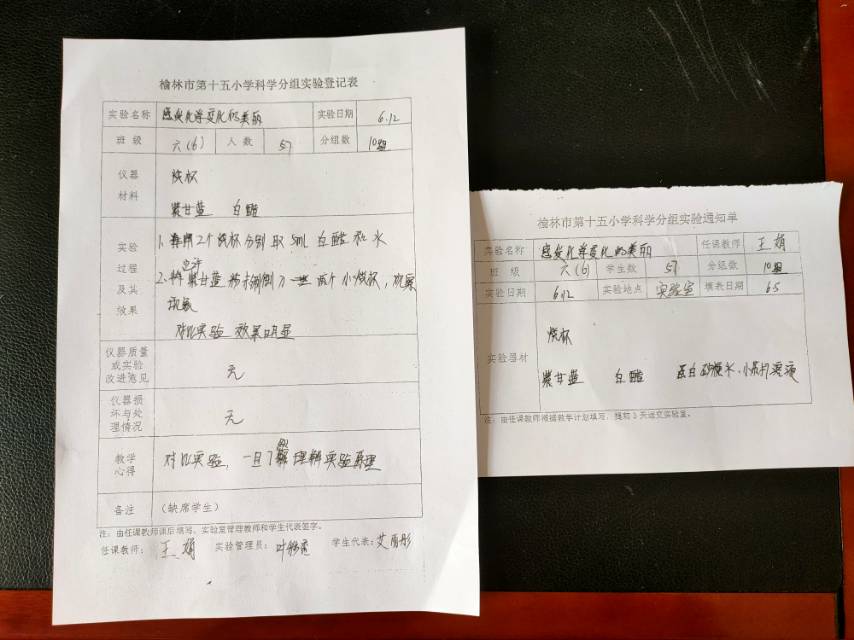 榆林市第十五小学科学分组实验登记表
实验名称 感受化学变化的美丽 实验日期 6.12
班级 六(6) 人数 57 分组数 10组
仪器材料 烧杯
紫甘蓝 白醋
实验过程及其效果 1. 用2个烧杯分别取5mL白醋和水
2. 将紫甘蓝 倒入 两个小烧杯,观察
现象
对比实验 效果明显
仪器质量或实验改进意见 无
仪器损坏与处理情况 无
教学心得 对比实验,一目了然 理解实验原理
备注 (缺席学生)
注:由任课教师课后填写,实验室管理教师和学生代表签字。
任课教师: 王娟 实验管理员: 学生代表:
榆林市第十五小学科学分组实验通知单
实验名称 感受化学变化的美丽 任课教师 王娟
班级 六(6) 学生数 57 分组数 10组
实验日期 6.12 实验地点 实验室 填表日期 6.5
实验器材 烧杯
紫甘蓝 白醋
注:由任课教师根据教学计划填写,提前3天送交实验室。